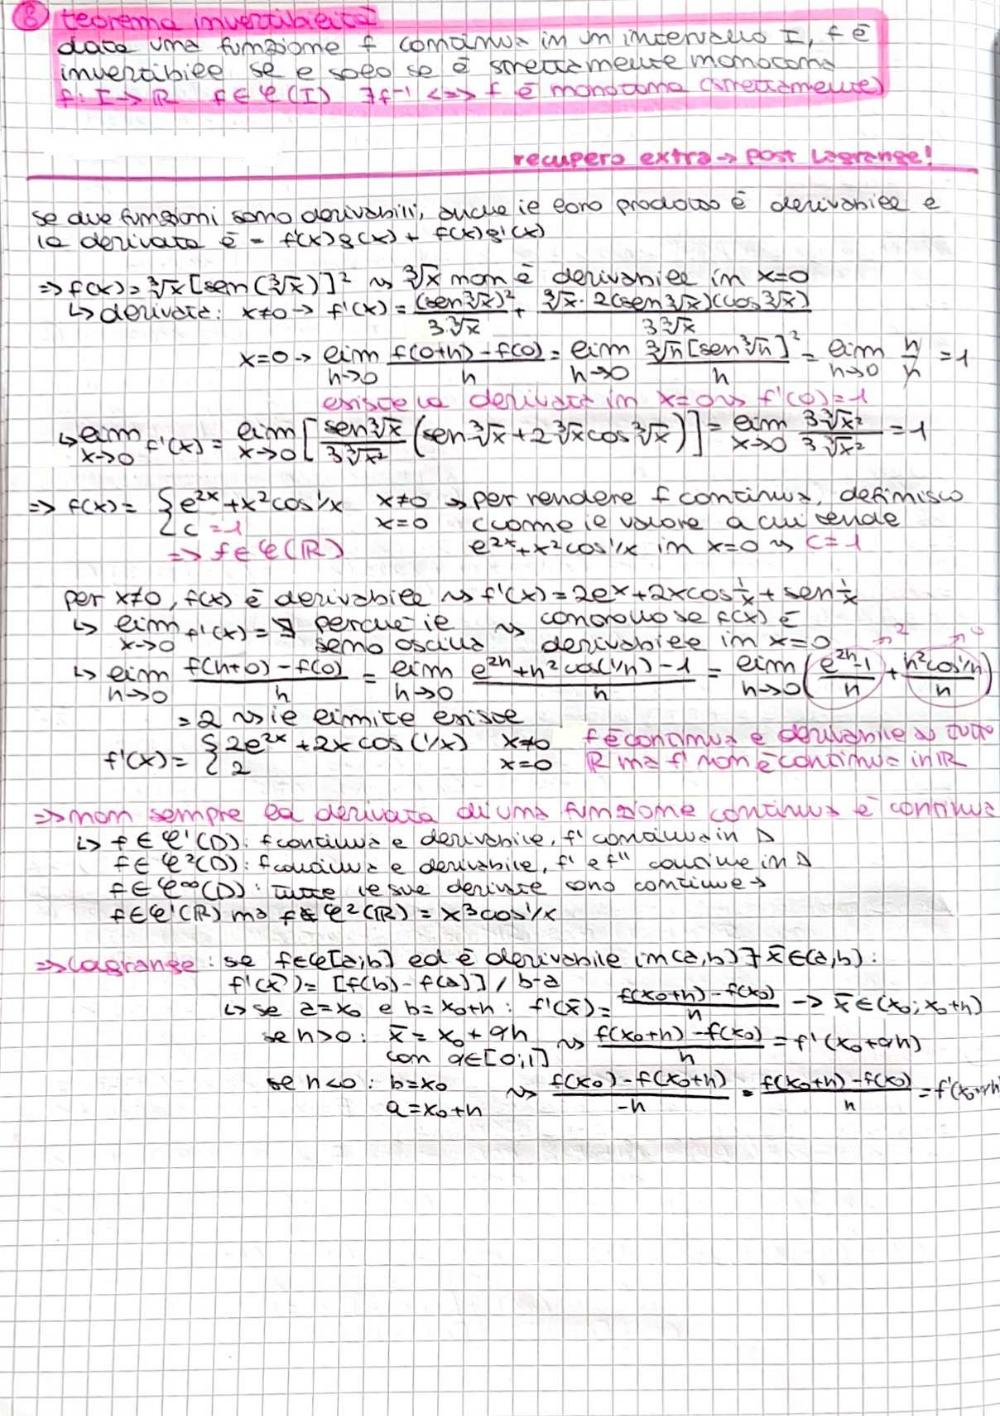 8 teorema invertibilità
data una funzione f continua in un intervallo I, f è
invertibile se e solo se è strettamente monotona
f: I → ℝ f ∈ 𝒞(I) ∃f⁻¹ <=> f è monotona (strettamente)
recupero extra → post Lagrange!
se due funzioni sono derivabili, anche il loro prodotto è derivabile e
la derivata è = f'(x)g(x) + f(x)g'(x)
⇒ f(x) = ∛x [sen(∛x)]² ⇝ ∛x non è derivabile in x=0
↳ derivata: x≠0 → f'(x) = (sen∛x)²/3∛x + ∛x · 2(sen∛x)(cos∛x)/3∛x
x=0 → lim h→0 f(0+h) - f(0)/h = lim h→0 ∛h [sen∛h]²/h = lim h→0 h/h = 1
esiste la derivata in x=0 ⇝ f'(0)=1
↳ lim x→0 f'(x) = lim x→0 [sen∛x/3∛x² (sen∛x + 2∛x cos∛x)] = lim x→0 3∛x²/3∛x² = 1
⇒ f(x) = { e²ˣ + x² cos 1/x x≠0 → per rendere f continua, definisco
c = 1 x=0 c come il valore a cui tende
⇒ f ∈ 𝒞(ℝ) e²ˣ + x² cos 1/x in x=0 ⇝ c=1
per x≠0, f(x) è derivabile ⇝ f'(x) = 2eˣ + 2x cos 1/x + sen 1/x
↳ lim x→0 f'(x) = ∄ perché il ⇝ controllo se f(x) è
seno oscilla derivabile in x=0 → 2 → 0
↳ lim h→0 f(h+0) - f(0)/h = lim h→0 e²ʰ + h² cos(1/h) - 1/h = lim h→0 (e²ʰ-1/h + h² cos 1/h/h)
= 2 ⇝ il limite esiste
f'(x) = { 2e²ˣ + 2x cos(1/x) x≠0 f è continua e derivabile su tutto
2 x=0 ℝ ma f' non è continua in ℝ
⇒ non sempre la derivata di una funzione continua è continua
↳ f ∈ 𝒞¹(D): f continua e derivabile, f' continua in D
f ∈ 𝒞²(D): f continua e derivabile, f' e f'' continue in D
f ∈ 𝒞^∞(D): tutte le sue derivate sono continue →
f ∈ 𝒞¹(ℝ) ma f ∉ 𝒞²(ℝ) = x³ cos 1/x
⇒ Lagrange: se f ∈ 𝒞[a,b] ed è derivabile in (a,b) ∃ x̄ ∈ (a,b):
f'(x̄) = [f(b) - f(a)] / b-a
↳ se a = x₀ e b = x₀+h: f'(x̄) = f(x₀+h) - f(x₀)/h → x̄ ∈ (x₀; x₀+h)
se h>0: x̄ = x₀ + qh ⇝ f(x₀+h) - f(x₀)/h = f'(x₀+qh)
con q ∈ [0;1]
se h<0: b = x₀ ⇝ f(x₀) - f(x₀+h)/-h = f(x₀+h) - f(x₀)/h = f'(x₀+qh
a = x₀+h